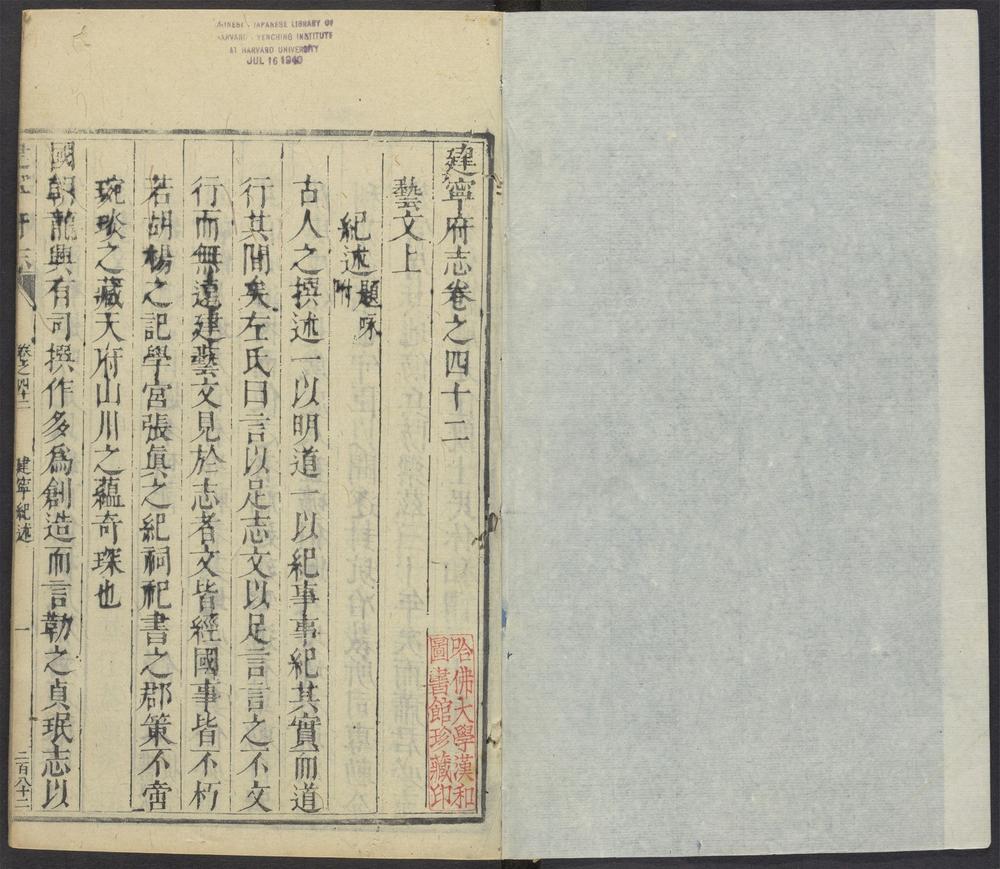 CHINESE - JAPANESE LIBRARY OF
HARVARD - YENCHING INSTITUTE
AT HARVARD UNIVERSITY
JUL 16 1940
建寧府志卷之四十二
藝文上
紀述題咏附
古人之撰述一以明道一以紀事事紀其實而道
行其間矣左氏曰言以足志文以足言言之不文
行而無遠建藝文見於志者文皆經國事皆不朽
若胡楊之記學宮張眞之紀祠祀書之郡策不啻
琬琰之藏天府山川之蘊奇琛也
國朝龍興有司撰作多爲創造而言勒之貞珉志以
建寧府志
卷之四十二
建寧紀述
一
二百八十二
哈佛大學漢和
圖書館珍藏印